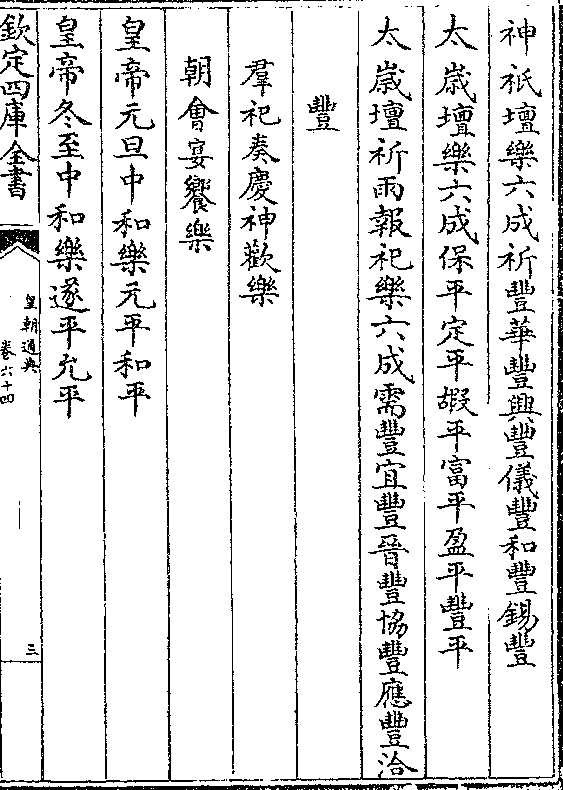 神祇壇樂六成祈豐華豐興豐儀豐和豐錫豐
太歲壇樂六成保平定平嘏平富平盈平豐平
太歲壇祈雨報祀樂六成需豐宜豐晉豐協豐應豐洽
豐
羣祀奏慶神歡樂
朝會宴饗樂
皇帝元旦中和樂元平和平
皇帝冬至中和樂遂平允平
欽定四庫全書
皇朝通典
卷六十四
三